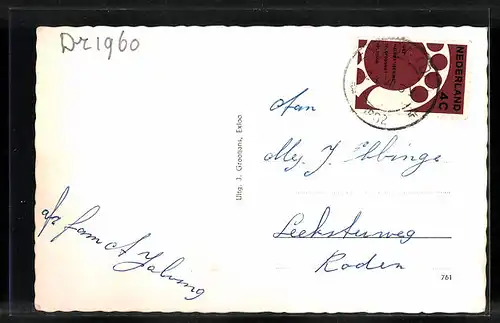 Dr1960
NEDERLAND
4C
Uitg. J. Grootens, Exloo
Aan
Mej. J. Ebbinge
Leeksterweg
Roden
a/p fam A Jalving
761